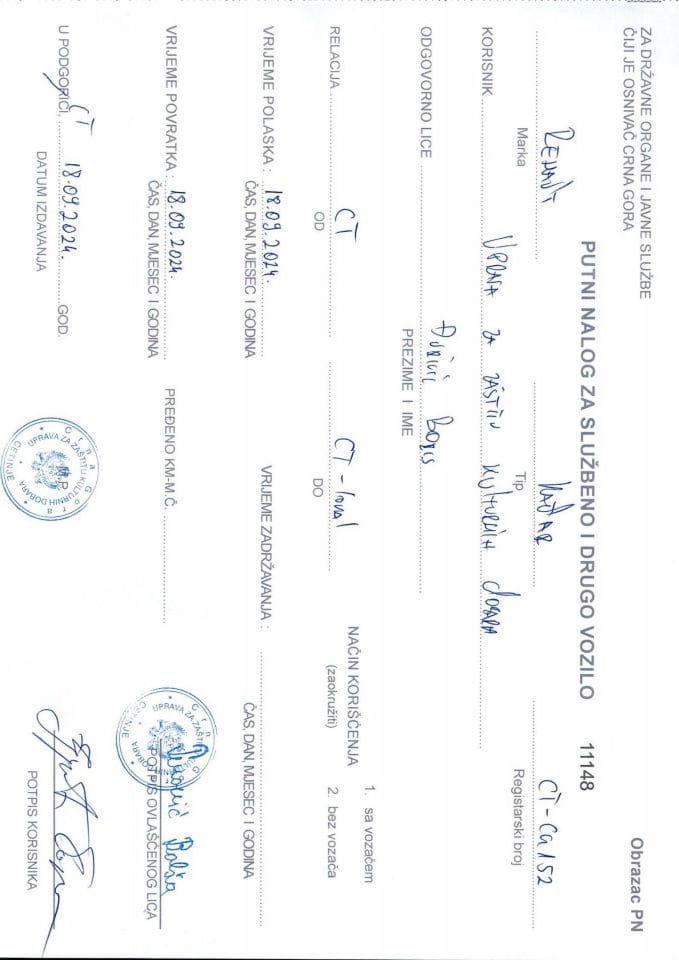 ZA DRŽAVNE ORGANE I JAVNE SLUŽBE
ČIJI JE OSNIVAČ CRNA GORA
Obrazac PN
PUTNI NALOG ZA SLUŽBENO I DRUGO VOZILO 11148
CT-CG152
Marka Tip Registarski broj
KORISNIK UPRAVA ZA ZAŠTITU KULTURNIH DOBARA
ODGOVORNO LICE
PREZIME I IME
RELACIJA CT CT-
OD DO
NAČIN KORIŠĆENJA
(zaokružiti)
1. sa vozačem
2. bez vozača
VRIJEME POLASKA : 18.09.2024. VRIJEME ZADRŽAVANJA :
ČAS, DAN, MJESEC I GODINA ČAS, DAN, MJESEC I GODINA
VRIJEME POVRATKA : 18.09.2024. PREĐENO KM-M.Č.
ČAS, DAN, MJESEC I GODINA
POTPIS OVLAŠĆENOG LICA
U PODGORICI, CT 18.09.2024. GOD.
DATUM IZDAVANJA
M.P.
Crna Gora
UPRAVA ZA ZAŠTITU KULTURNIH DOBARA
CETINJE
POTPIS KORISNIKA